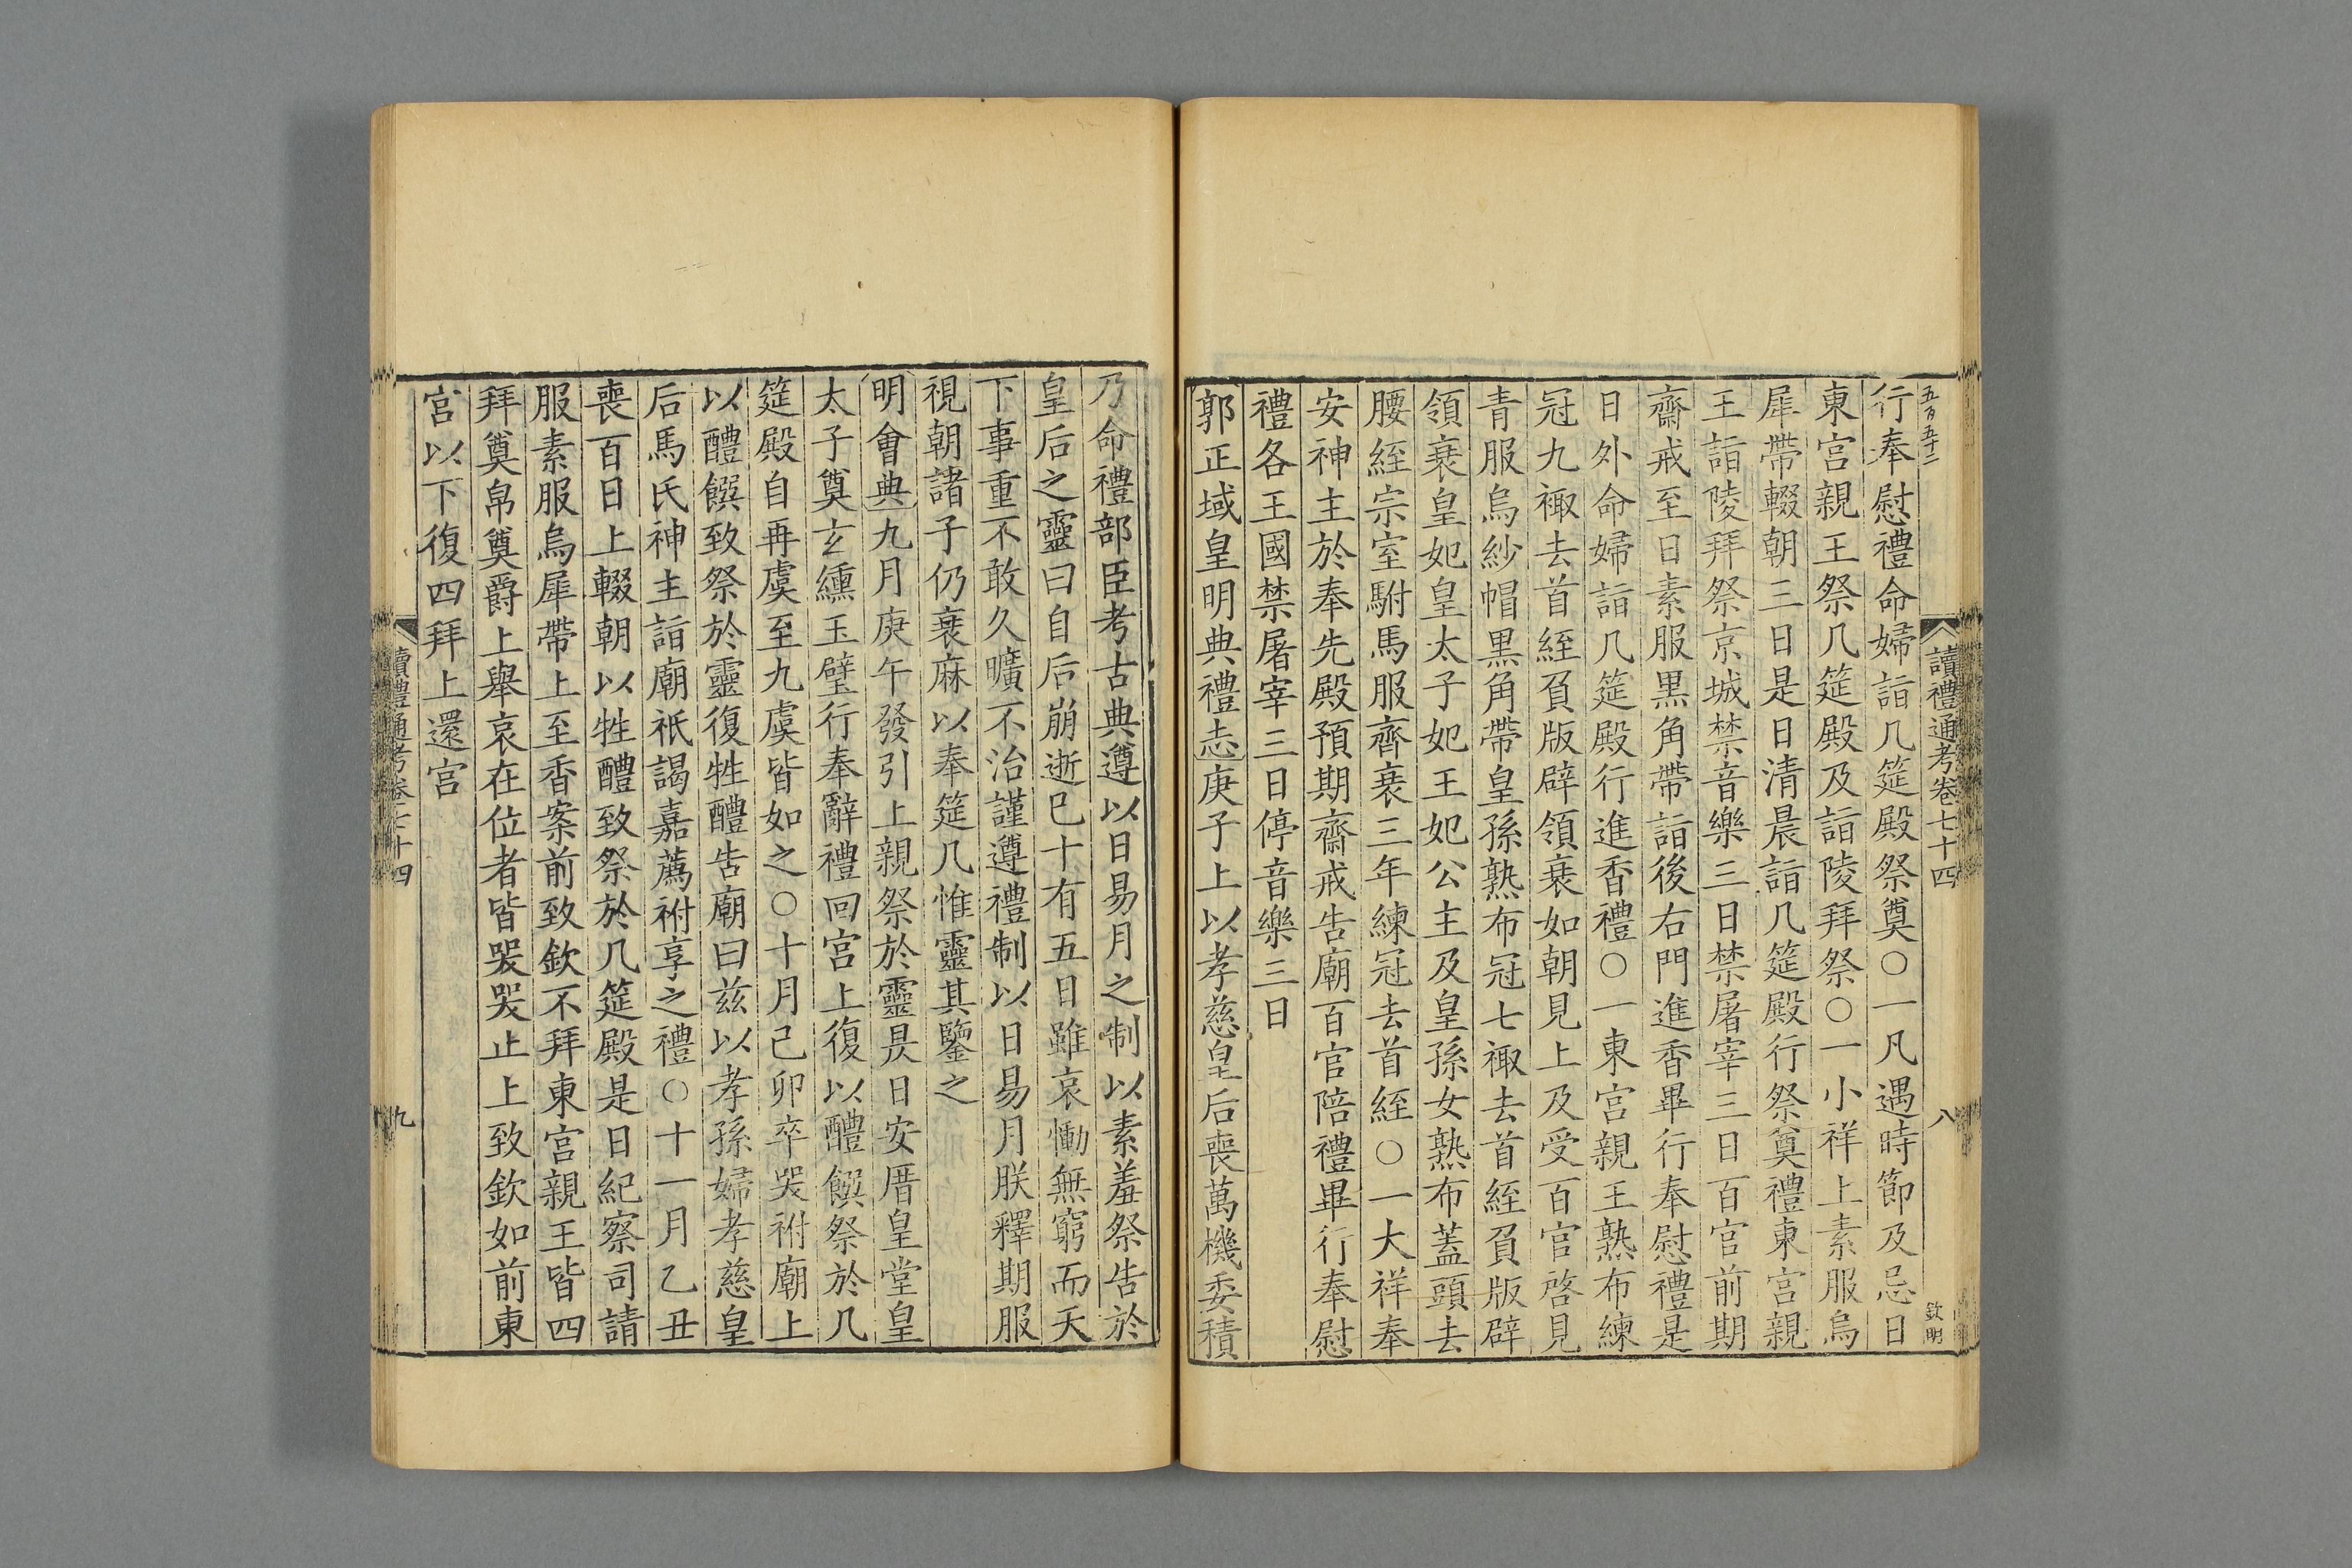 五百五十二
讀禮通考卷七十四
八
欽明
行奉慰禮命婦詣几筵殿祭奠○一凡遇時節及忌日
東宮親王祭几筵殿及詣陵拜祭○一小祥上素服烏
犀帶輟朝三日是日清晨詣几筵殿行祭奠禮東宮親
王詣陵拜祭京城禁音樂三日禁屠宰三日百官前期
齋戒至日素服黑角帶詣後右門進香畢行奉慰禮是
日外命婦詣几筵殿行進香禮○一東宮親王熟布練
冠九𧙞去首絰負版辟領衰如朝見上及受百官啓見
青服烏紗帽黑角帶皇孫熟布冠七𧙞去首絰負版辟
領衰皇妃皇太子妃王妃公主及皇孫女熟布蓋頭去
腰絰宗室駙馬服齊衰三年練冠去首絰○一大祥奉
安神主於奉先殿預期齋戒告廟百官陪禮畢行奉慰
禮各王國禁屠宰三日停音樂三日
郭正域皇明典禮志庚子上以孝慈皇后喪萬機委積
乃命禮部臣考古典遵以日易月之制以素羞祭告於
皇后之靈曰自后崩逝已十有五日雖哀慟無窮而天
下事重不敢久曠不治謹遵禮制以日易月朕釋期服
視朝諸子仍衰麻以奉筵几惟靈其鑒之
明會典九月庚午發引上親祭於靈是日安厝皇堂皇
太子奠玄纁玉璧行奉辭禮回宮上復以醴饌祭於几
筵殿自再虞至九虞皆如之○十月己卯卒哭祔廟上
以醴饌致祭於靈復牲醴告廟曰茲以孝孫婦孝慈皇
后馬氏神主詣廟祇謁嘉薦祔享之禮○十一月乙丑
喪百日上輟朝以牲醴致祭於几筵殿是日紀察司請
服素服烏犀帶上至香案前致欽不拜東宮親王皆四
拜奠帛奠爵上舉哀在位者皆哭哭止上致欽如前東
宮以下復四拜上還宮
讀禮通考卷七十四
九